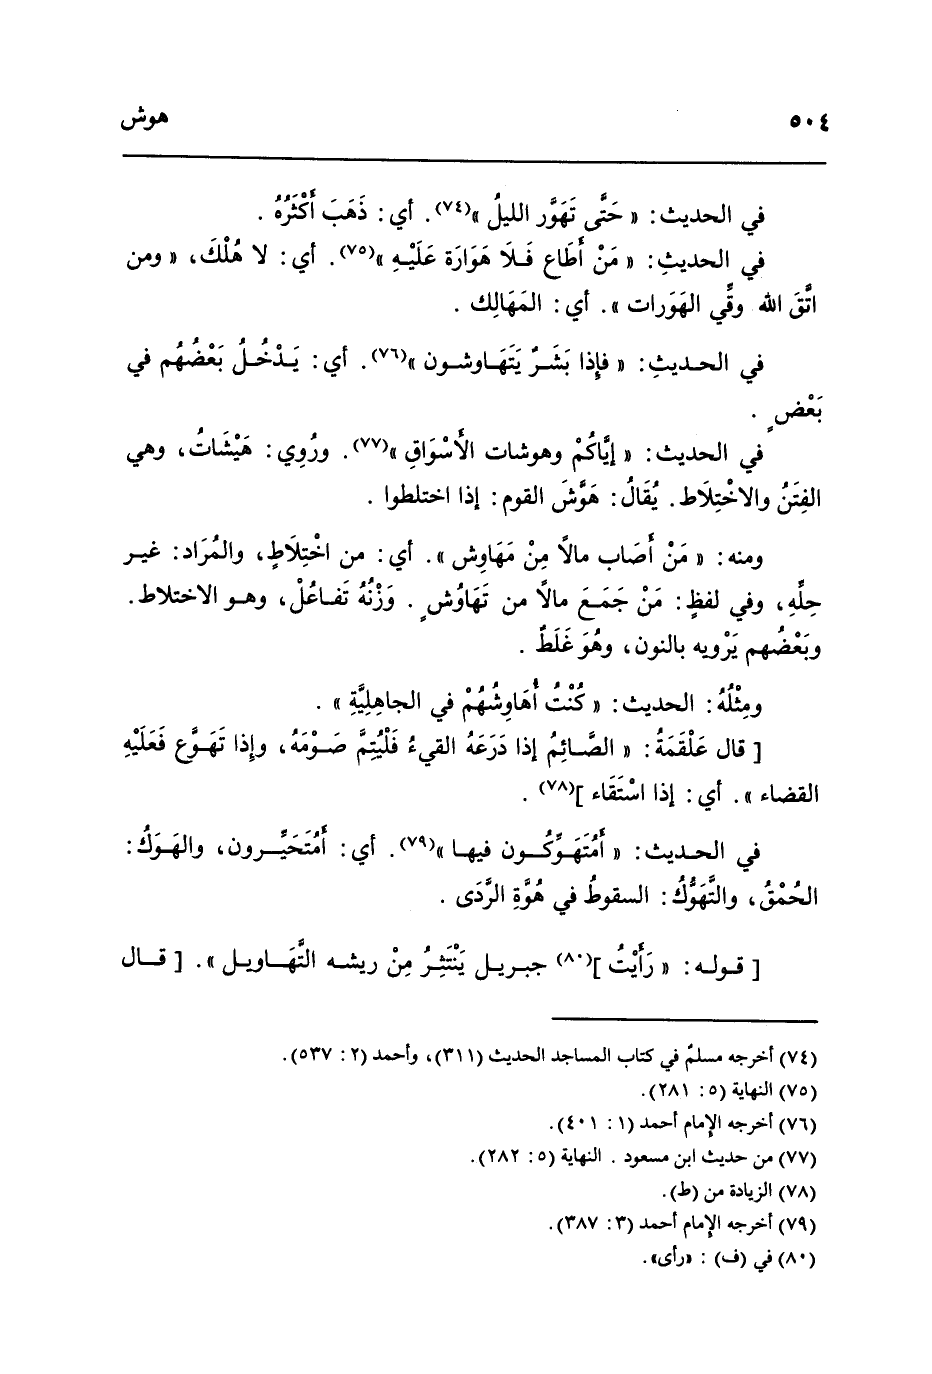 ٥٠٤ هوش
في الحديث: « حَتَّى تَهَوَّر الليلُ »(٧٤). أي: ذَهَبَ أَكْثَرُهُ .
في الحديثِ: « مَنْ أَطَاع فَـلَا هَوَارَة عَلَيْـهِ »(٧٥). أي: لا هُلْكَ، « ومن
اتَّقَ الله وقِّي الهَوَرات ». أي: المَهَالِك .
في الحـديثِ: « فإِذا بَشَـرٌ يَتَهَـاوشـون »(٧٦). أي: يَـدْخُـلُ بَعْضُـهُم في
بَعْضٍ .
في الحديث: « إيَّاكُمْ وهوشات الأَسْوَاقِ »(٧٧). ورُوِي: هَيْشَاتُ، وهي
الفِتَنُ والاخْتِلَاط. يُقَالُ: هَوَّشَ القوم: إذا اختلطوا .
ومنه: « مَنْ أَصَاب مالاً مِنْ مَهَاوِش ». أي: من اخْتِلَاطٍ، والمُرَاد: غيـر
حِلِّهِ، وفي لفظٍ: مَنْ جَمَـعَ مالاً من تَهَاوُشٍ . وَزْنُهُ تَفـاعُلْ، وهـو الاختلاط.
وبَعْضُهم يَرْويه بالنون، وهُوَ غَلَطٌ .
ومِثْلُهُ: الحديث: « كُنْتُ أُهَاوِشُهُمْ في الجاهِليَّةِ » .
[ قال عَلْقَمَةُ: « الصَّـائِمُ إذا ذَرَعَهُ القيءُ فَلْيُتِمَّ صَـوْمَهُ، وإِذا تَهَـوَّع فَعَلَيْهِ
القضاء ». أي: إذا اسْتَقَاء ](٧٨) .
في الحـديث: « أَمُتَهَـوِّكُـون فيهـا »(٧٩). أي: أَمُتَحَيِّـرون، والهَـوَكُ:
الحُمْقُ، والتَّهَوُّكُ: السقوطُ في هُوَّةِ الرَّدَى .
[ قـولـه: « رَأَيْتُ ](٨٠) جبريـل يَنْتَثِـرُ مِنْ ريشـه التَّهَـاويـل ». [ قـال
(٧٤) أخرجه مسلمٌ في كتاب المساجد الحديث (٣١١)، وأحمد (٢: ٥٣٧).
(٧٥) النهاية (٥: ٢٨١).
(٧٦) أخرجه الإمام أحمد (١: ٤٠١).
(٧٧) من حديث ابن مسعود . النهاية (٥: ٢٨٢).
(٧٨) الزيادة من (ط).
(٧٩) أخرجه الإمام أحمد (٣: ٣٨٧).
(٨٠) في (ف) : «رأى».